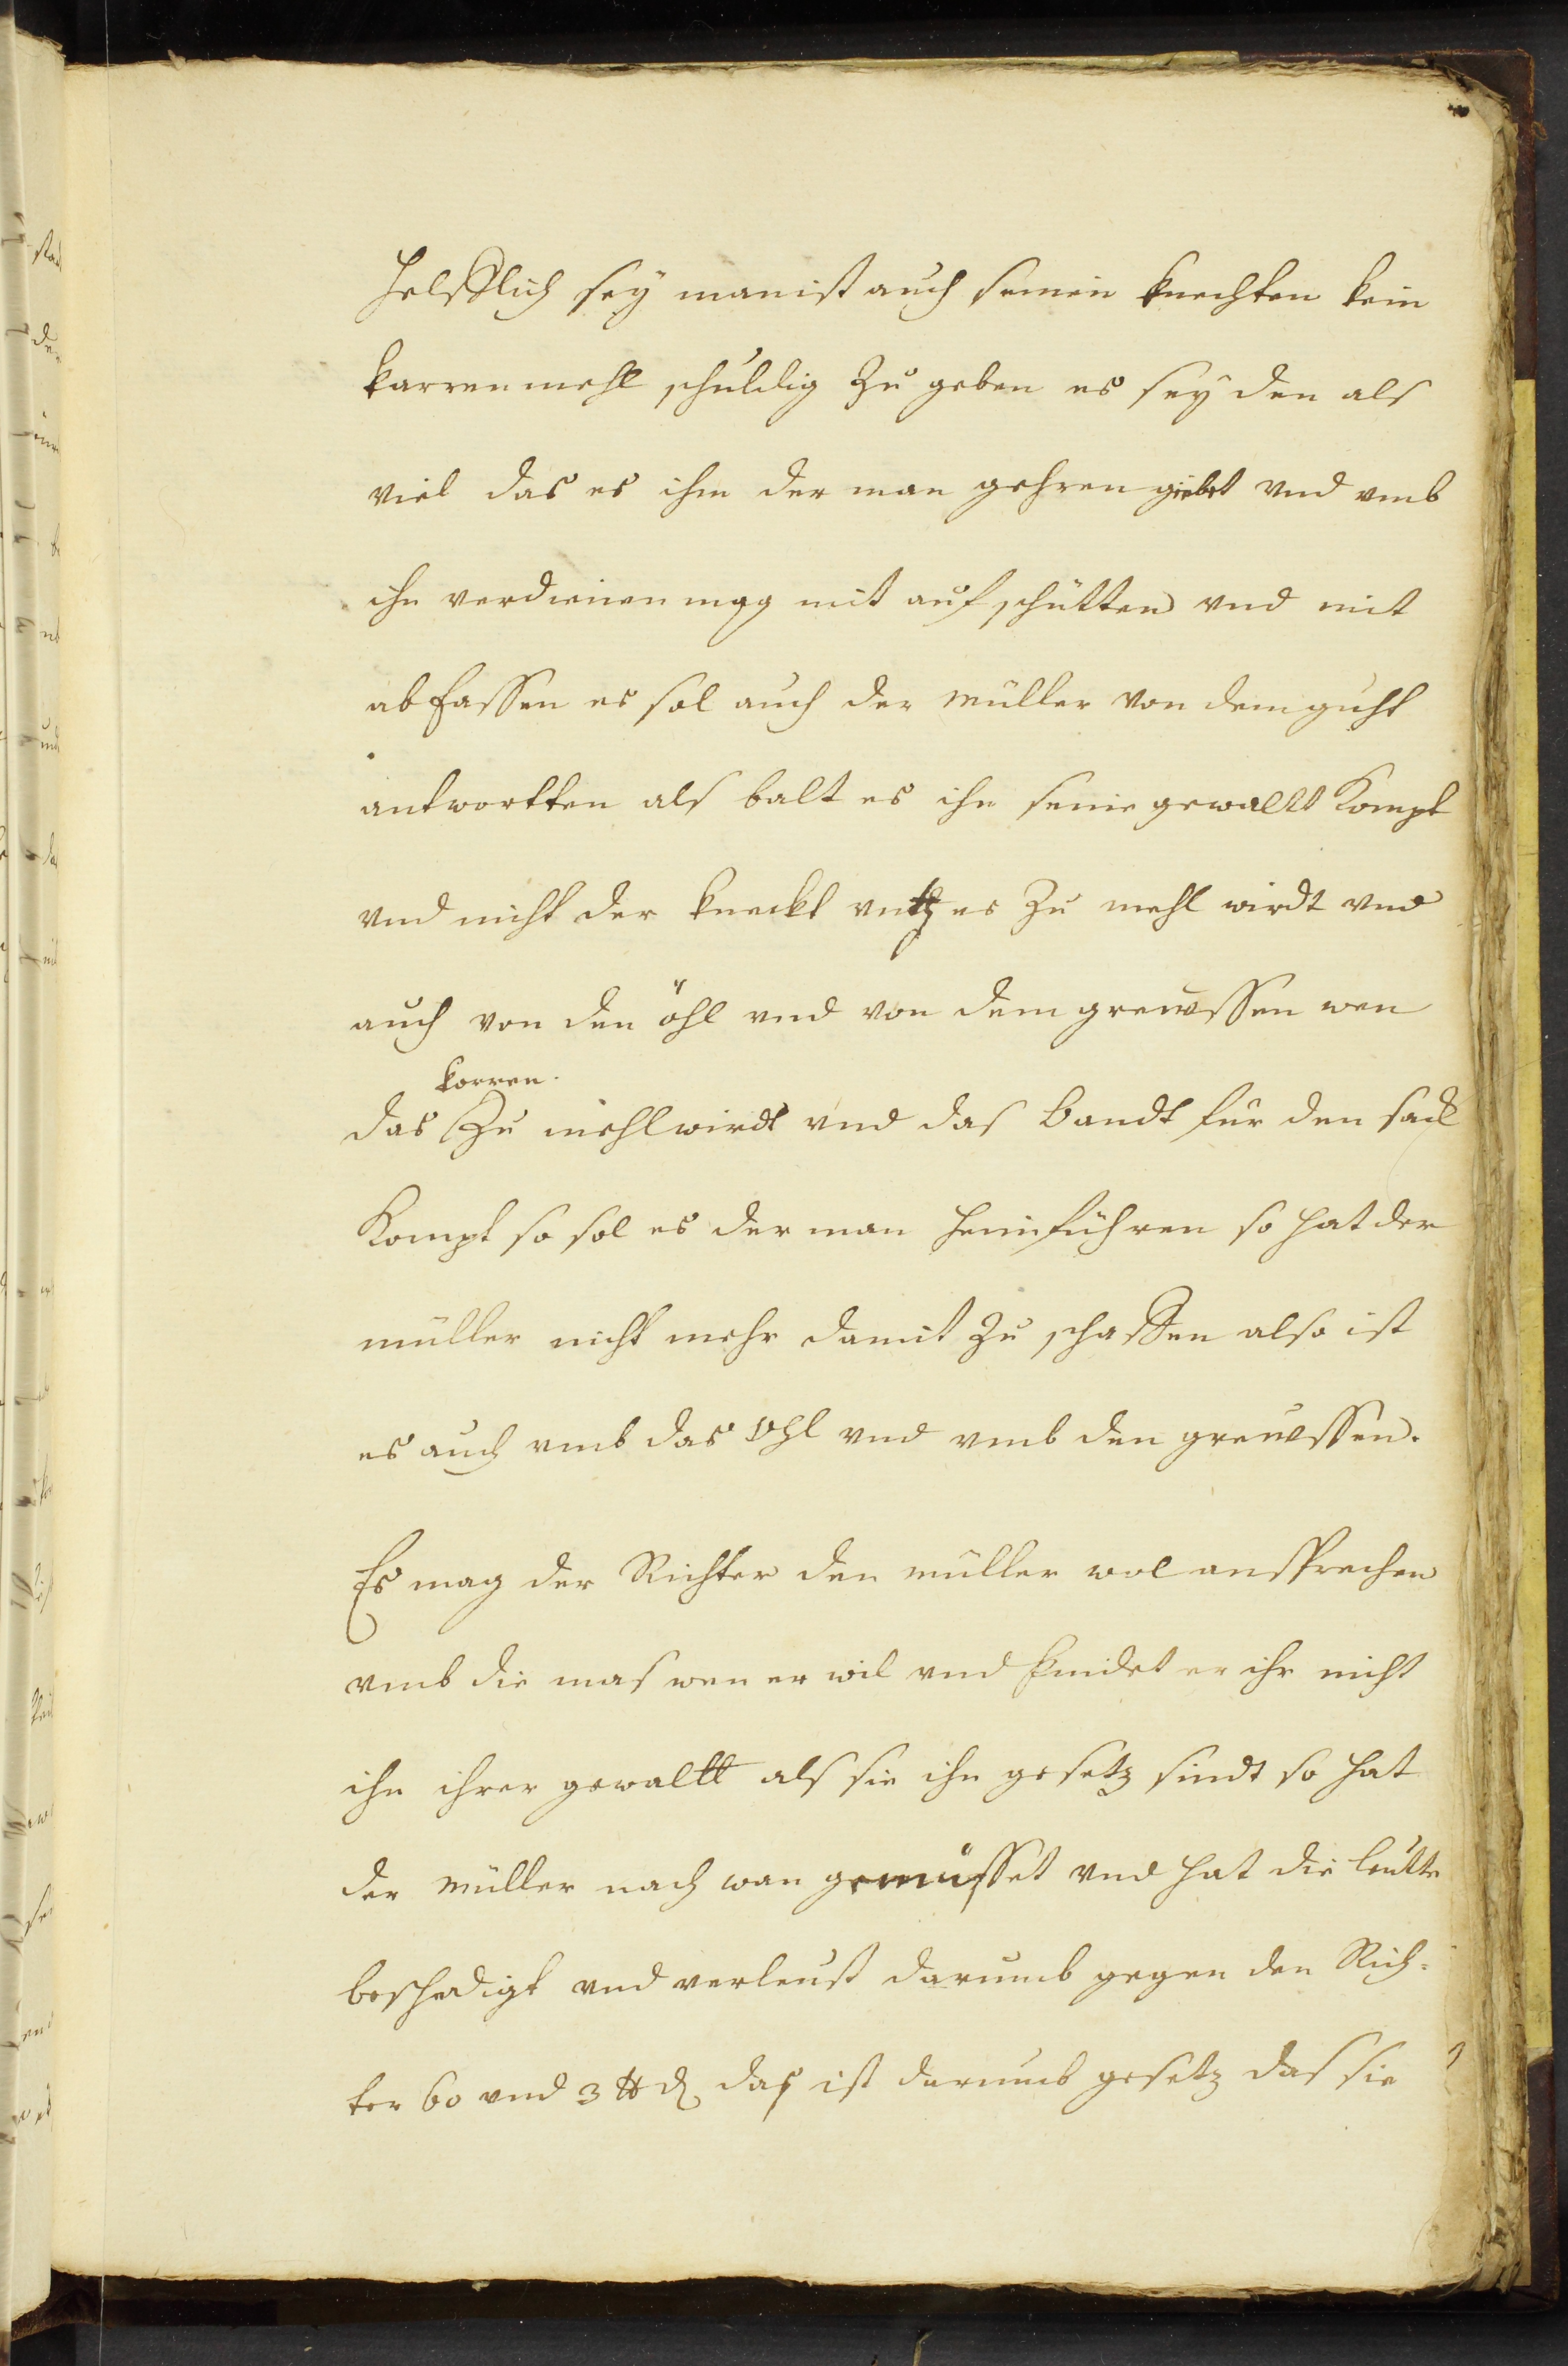 helfflich sey man ist auch seinen knechten kein
karren mehl schuldig zu geben es sey den als
viel das es ihm der man gehren giebet vnd vmb
ihn verdienen mag mit auf schütten vnd mit
ab fassen es sol auch der müller von dem guht
antwortten als balt es ihn seine gewaltt kompt
vnd nicht der kneckt vntz es zu mehl wirdt vnd
auch von den öhl vnd von dem greussen wen
korren.
das zu mehl wirdt vnd das bandt für den sack
kompt so sol es der man heimführen so hat der
müller nicht mehr damit zu schaffen also ist
es auch vmb das öhl vnd vmb den greussen.
Es mag der Richter den müller wol ansprechen
vmb die mas wen er wil vnd findet er ihr nicht
ihn ihrer gewaltt als sie ihn gesetz sindt so hat
der müller nach wan gemüsset vnd hat die leutte
beschedigt vnd verleust darumb gegen den Rich-
ter 60 vnd 3 ℔ ₰ das ist darumb gesetz das sie